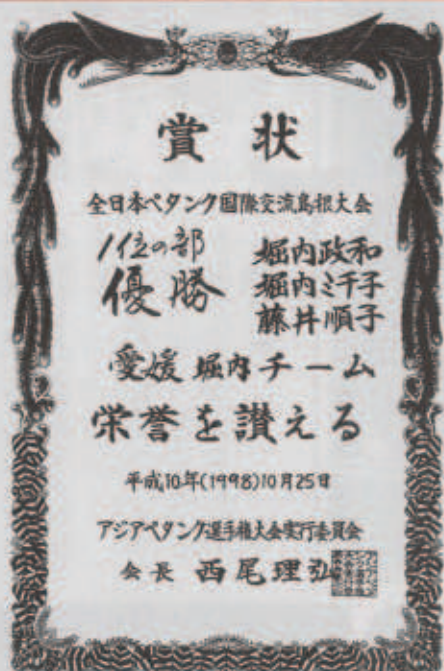 賞状
全日本ペタンク国際交流島根大会
1位の部
優勝
堀内政和
堀内ミ千子
藤井順子
愛媛 堀内チーム
栄誉を讃える
平成10年(1998)10月25日
アジアペタンク選手権大会実行委員会
会長 西尾理弘